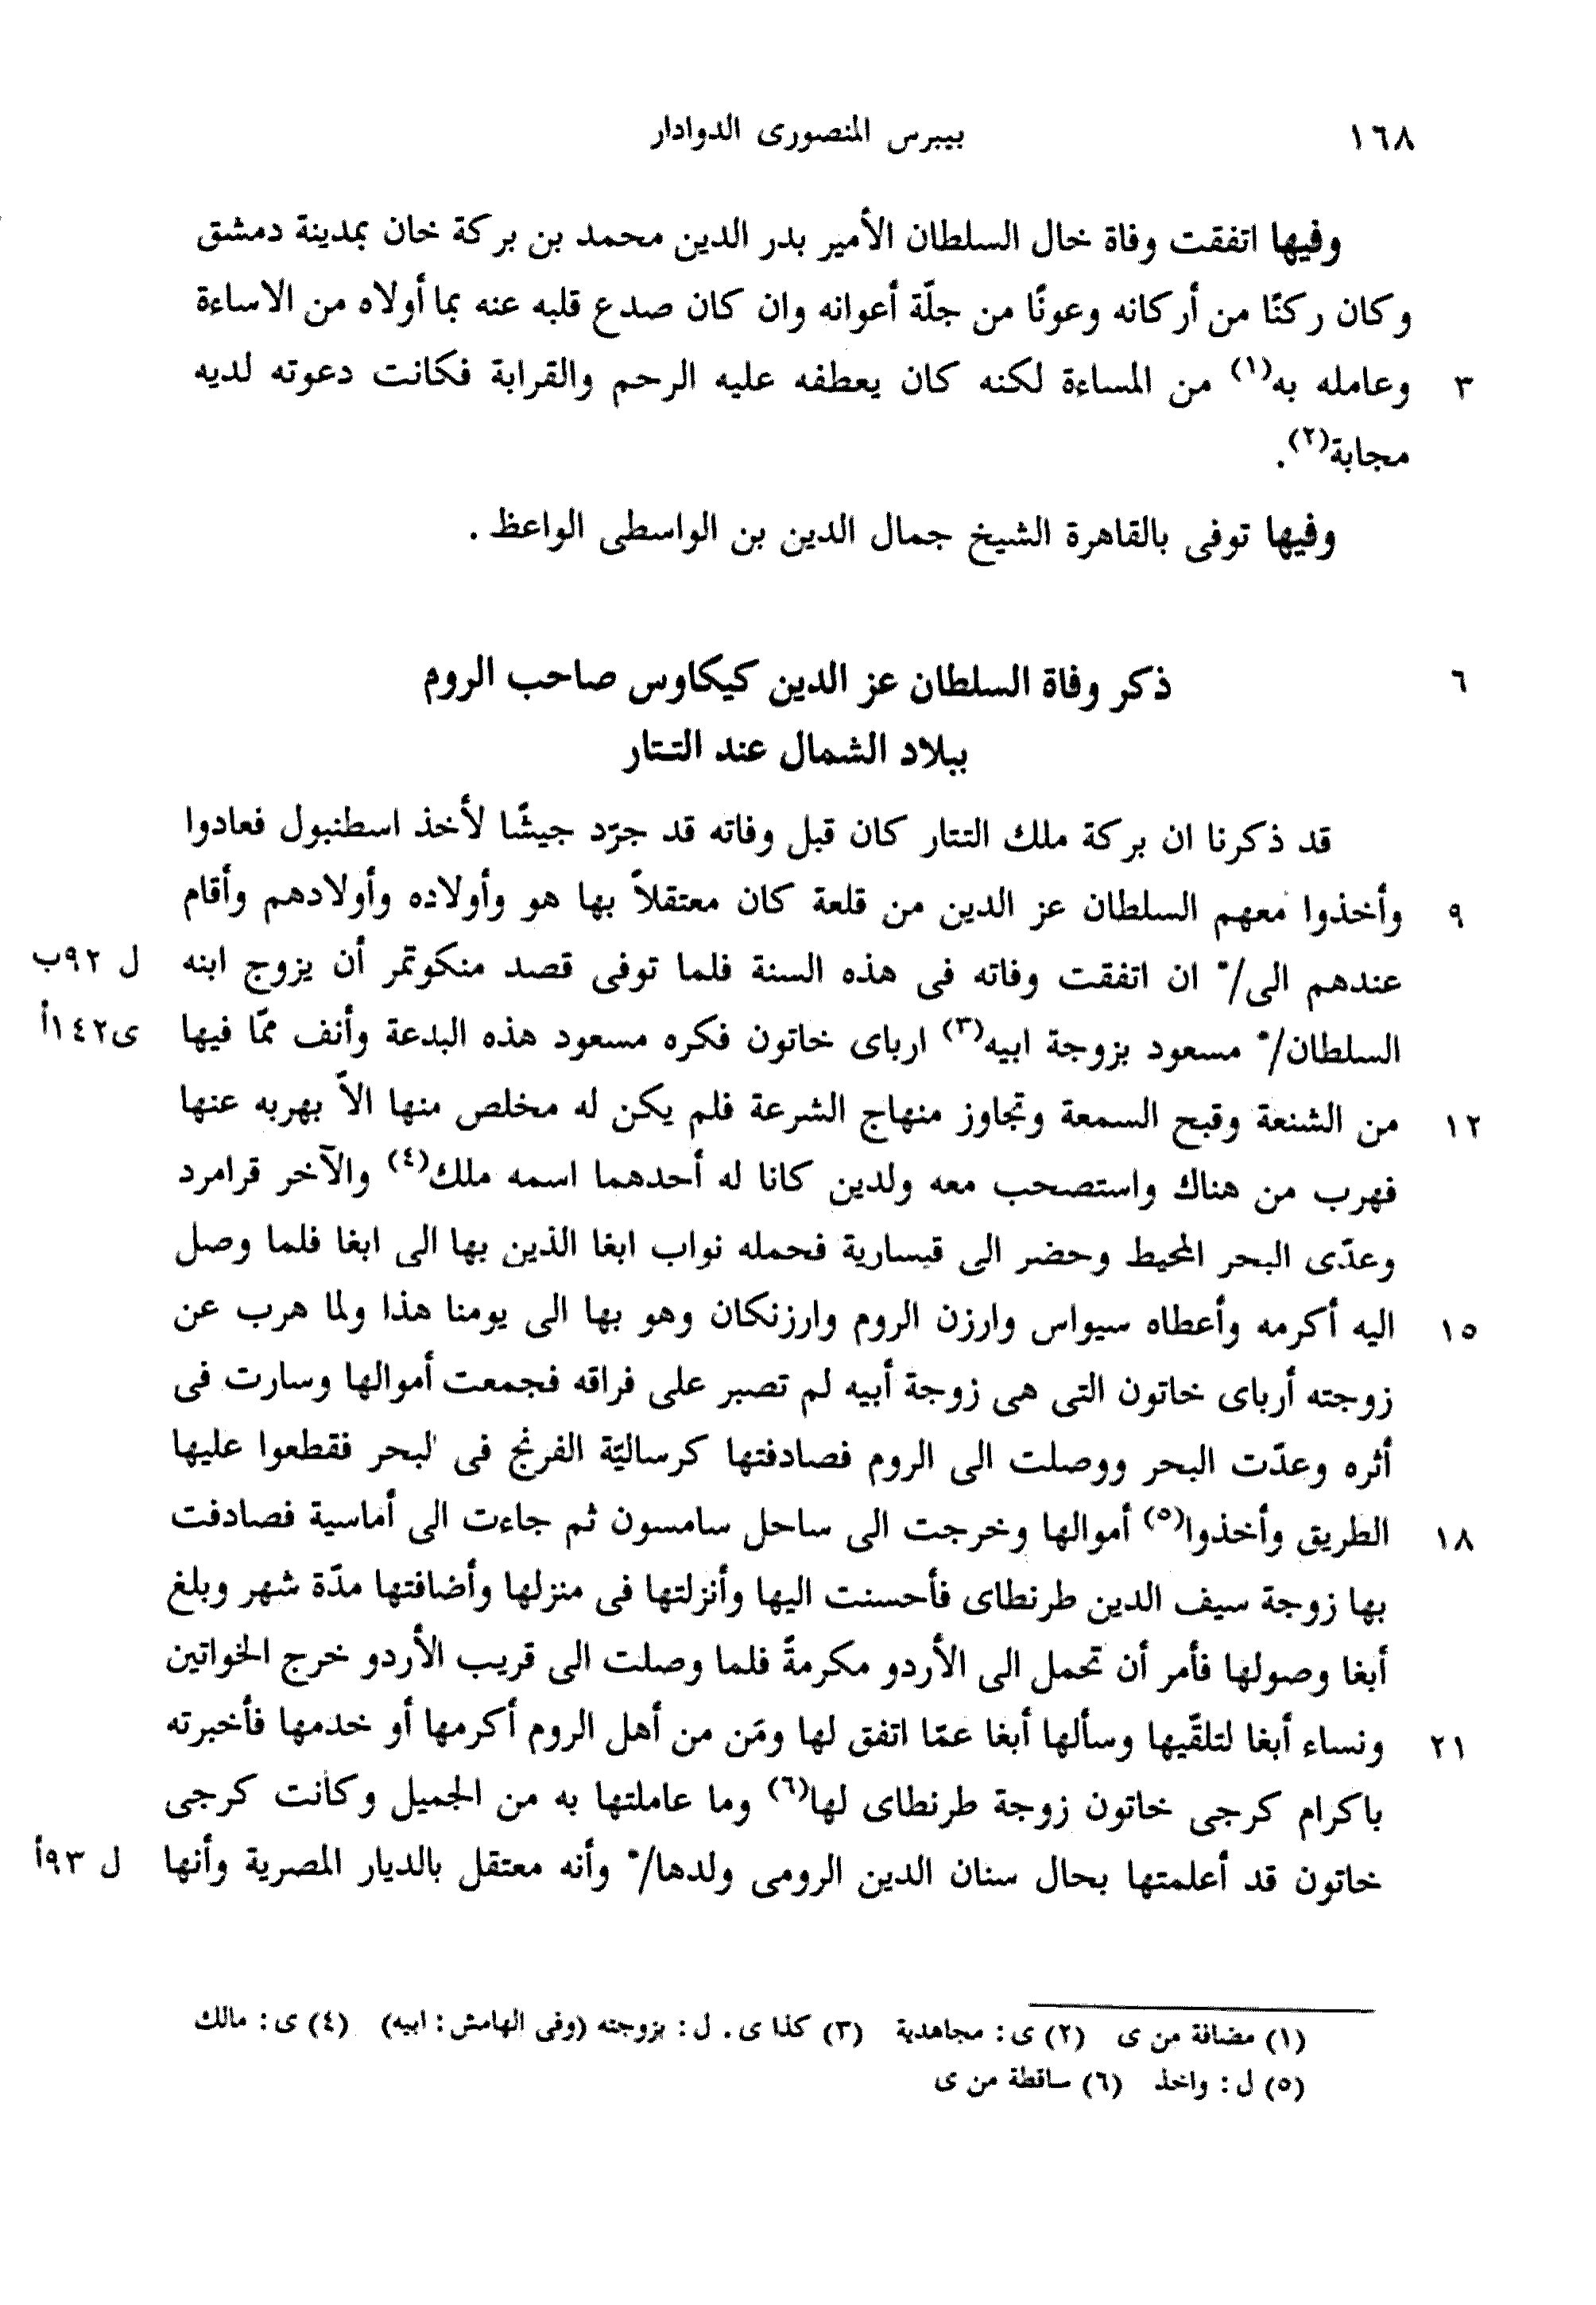 ١٦٨ بيبرس المنصورى الدوادار
وفيها اتفقت وفاة خال السلطان الأمير بدر الدين محمد بن بركة خان بمدينة دمشق
وكان ركنًا من أركانه وعونًا من جلّة أعوانه وان كان صدع قلبه عنه بما أولاه من الاساءة
٣ وعامله به(١) من المساءة لكنه كان يعطفه عليه الرحم والقرابة فكانت دعوته لديه
مجابة(٢).
وفيها توفى بالقاهرة الشيخ جمال الدين بن الواسطى الواعظ.
٦ ذكر وفاة السلطان عز الدين كيكاوس صاحب الروم
ببلاد الشمال عند التتار
قد ذكرنا ان بركة ملك التتار كان قبل وفاته قد جرّد جيشًا لأخذ اسطنبول فعادوا
٩ وأخذوا معهم السلطان عز الدين من قلعة كان معتقلاً بها هو وأولاده وأولادهم وأقام
عندهم الى/* ان اتفقت وفاته فى هذه السنة فلما توفى قصد منكوتمر أن يزوج ابنه ل ٩٢ب
السلطان/* مسعود بزوجة ابيه(٣) ارباى خاتون فكره مسعود هذه البدعة وأنف ممّا فيها ى١٤٢أ
١٢ من الشنعة وقبح السمعة وتجاوز منهاج الشرعة فلم يكن له مخلص منها الاّ بهربه عنها
فهرب من هناك واستصحب معه ولدين كانا له أحدهما اسمه ملك(٤) والآخر قرامرد
وعدّى البحر المحيط وحضر الى قيسارية فحمله نواب ابغا الذين بها الى ابغا فلما وصل
١٥ اليه أكرمه وأعطاه سيواس وارزن الروم وارزنكان وهو بها الى يومنا هذا ولما هرب عن
زوجته أرباى خاتون التى هى زوجة أبيه لم تصبر على فراقه فجمعت أموالها وسارت فى
أثره وعدّت البحر ووصلت الى الروم فصادفتها كرساليّة الفرنج فى البحر فقطعوا عليها
١٨ الطريق وأخذوا(٥) أموالها وخرجت الى ساحل سامسون ثم جاءت الى أماسية فصادفت
بها زوجة سيف الدين طرنطاى فأحسنت اليها وأنزلتها فى منزلها وأضافتها مدّة شهر وبلغ
أبغا وصولها فأمر أن تحمل الى الأردو مكرمةً فلما وصلت الى قريب الأردو خرج الخواتين
٢١ ونساء أبغا لتلقّيها وسألها أبغا عمّا اتفق لها ومَن من أهل الروم أكرمها أو خدمها فأخبرته
باكرام كرجى خاتون زوجة طرنطاى لها(٦) وما عاملتها به من الجميل وكانت كرجى
خاتون قد أعلمتها بحال سنان الدين الرومى ولدها/* وأنه معتقل بالديار المصرية وأنها ل ٩٣أ
(١) مضافة من ى (٢) ى: مجاهدية (٣) كذا ى. ل: بزوجته (وفى الهامش: ابيه) (٤) ى: مالك
(٥) ل: واخذ (٦) ساقطة من ى